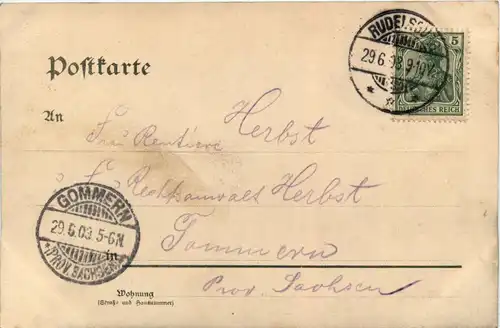 RUDELSB
29.6.03.9-10V.
5
DEUTSCHES REICH
Postkarte
An
Frau Rentiere Herbst
Rechtsanwalt Herbst
GOMMERN
29.6.03 5-6N.
*(PROV. SACHSEN)*
in Gommern
Prov. Sachsen
Wohnung
(Straße und Hausnummer)